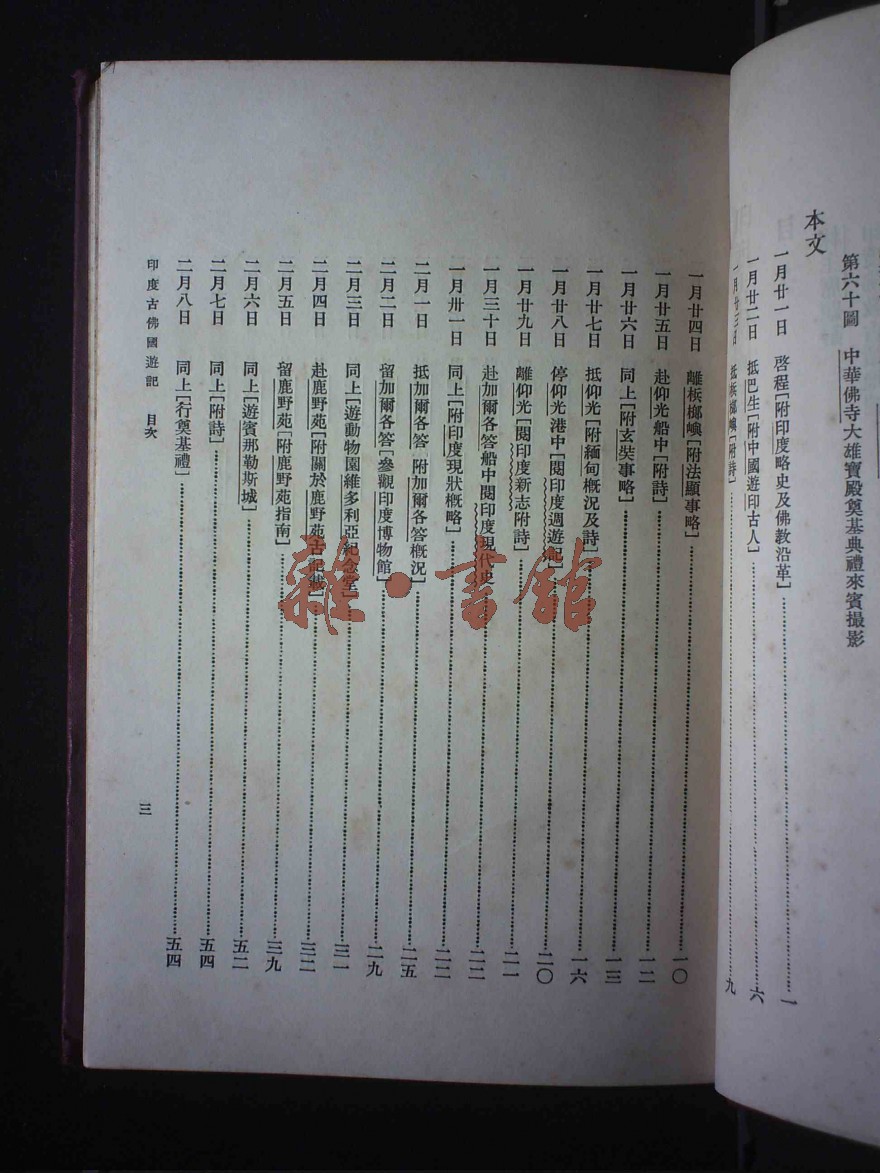 第六十圖　中華佛寺大雄寶殿奠基典禮來賓撮影
本文
一月廿一日　啓程［附印度略史及佛教沿革］……一
一月廿二日　抵巴生［附中國遊印古人］……六
一月廿三日　抵梹榔嶼［附詩］……九
一月廿四日　離梹榔嶼［附法顯事略］……一〇
一月廿五日　赴仰光船中［附詩］……一二
一月廿六日　同上［附玄奘事略］……一三
一月廿七日　抵仰光［附緬甸概况及詩］……一六
一月廿八日　停仰光港中［閱印度週遊記］……二〇
一月廿九日　離仰光［閱印度新志附詩］……二一
一月三十日　赴加爾各答船中閱印度現代史……二二
一月卅一日　同上［附印度現狀概略］……二二
二月一日　抵加爾各答　附加爾各答概況］……二五
二月二日　留加爾各答［參觀印度博物館］……二九
二月三日　同上［遊動物園維多利亞紀念堂］……三一
二月四日　赴鹿野苑［附關於鹿野苑古記載］……三二
二月五日　留鹿野苑［附鹿野苑指南］……三九
二月六日　同上［遊賓那勒斯城］……五二
二月七日　同上［附詩］……五四
二月八日　同上［行奠基禮］……五四
印度古佛國遊記　目次
三
雜·書館